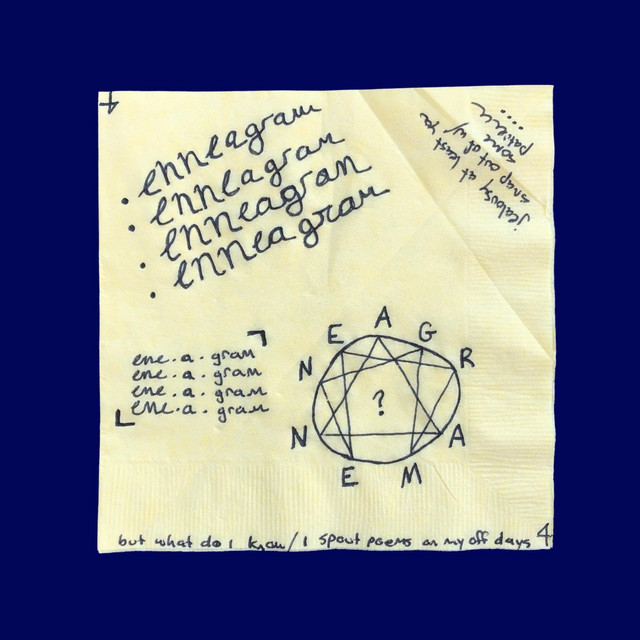 4
• enneagram
• enneagram
• enneagram
• enneagram
jealousy at least
snap out of w/ ya
some
patience
....
ene.a.gram
ene.a.gram
ene.a.gram
ene.a.gram
E N N E A G R A M
?
but what do I know/I spout poems on my off days 4